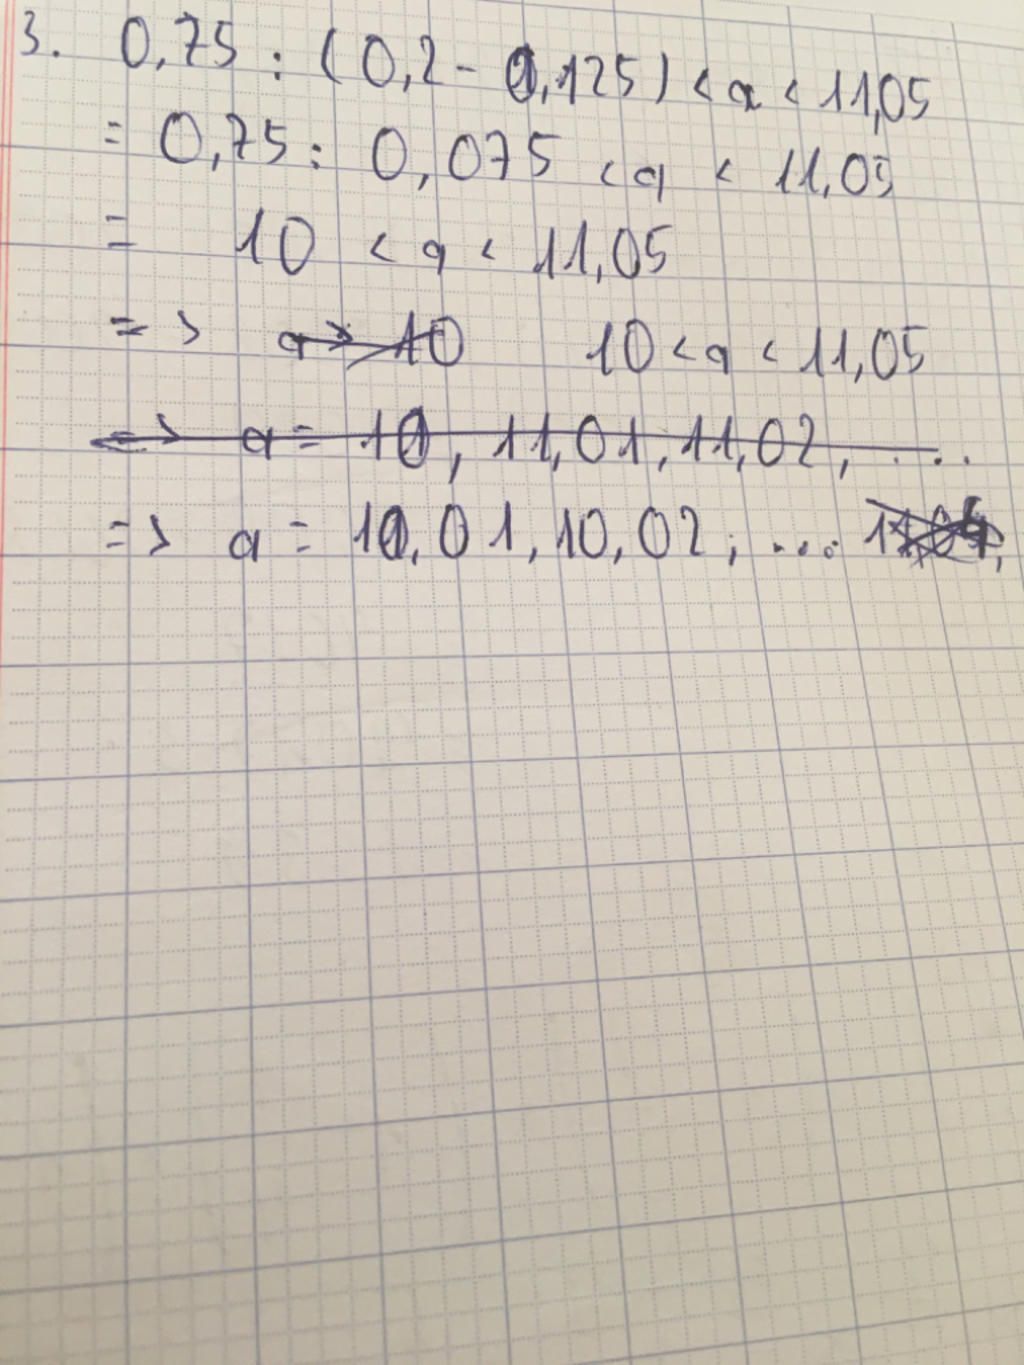 3. 0,75 : (0,2 - 0,125) < a < 11,05
= 0,75 : 0,075 < a < 11,05
= 10 < a < 11,05
=> a > 10 10 < a < 11,05
<=> a = 10, 11,01, 11,02, ...
=> a = 10,01, 10,02, ...